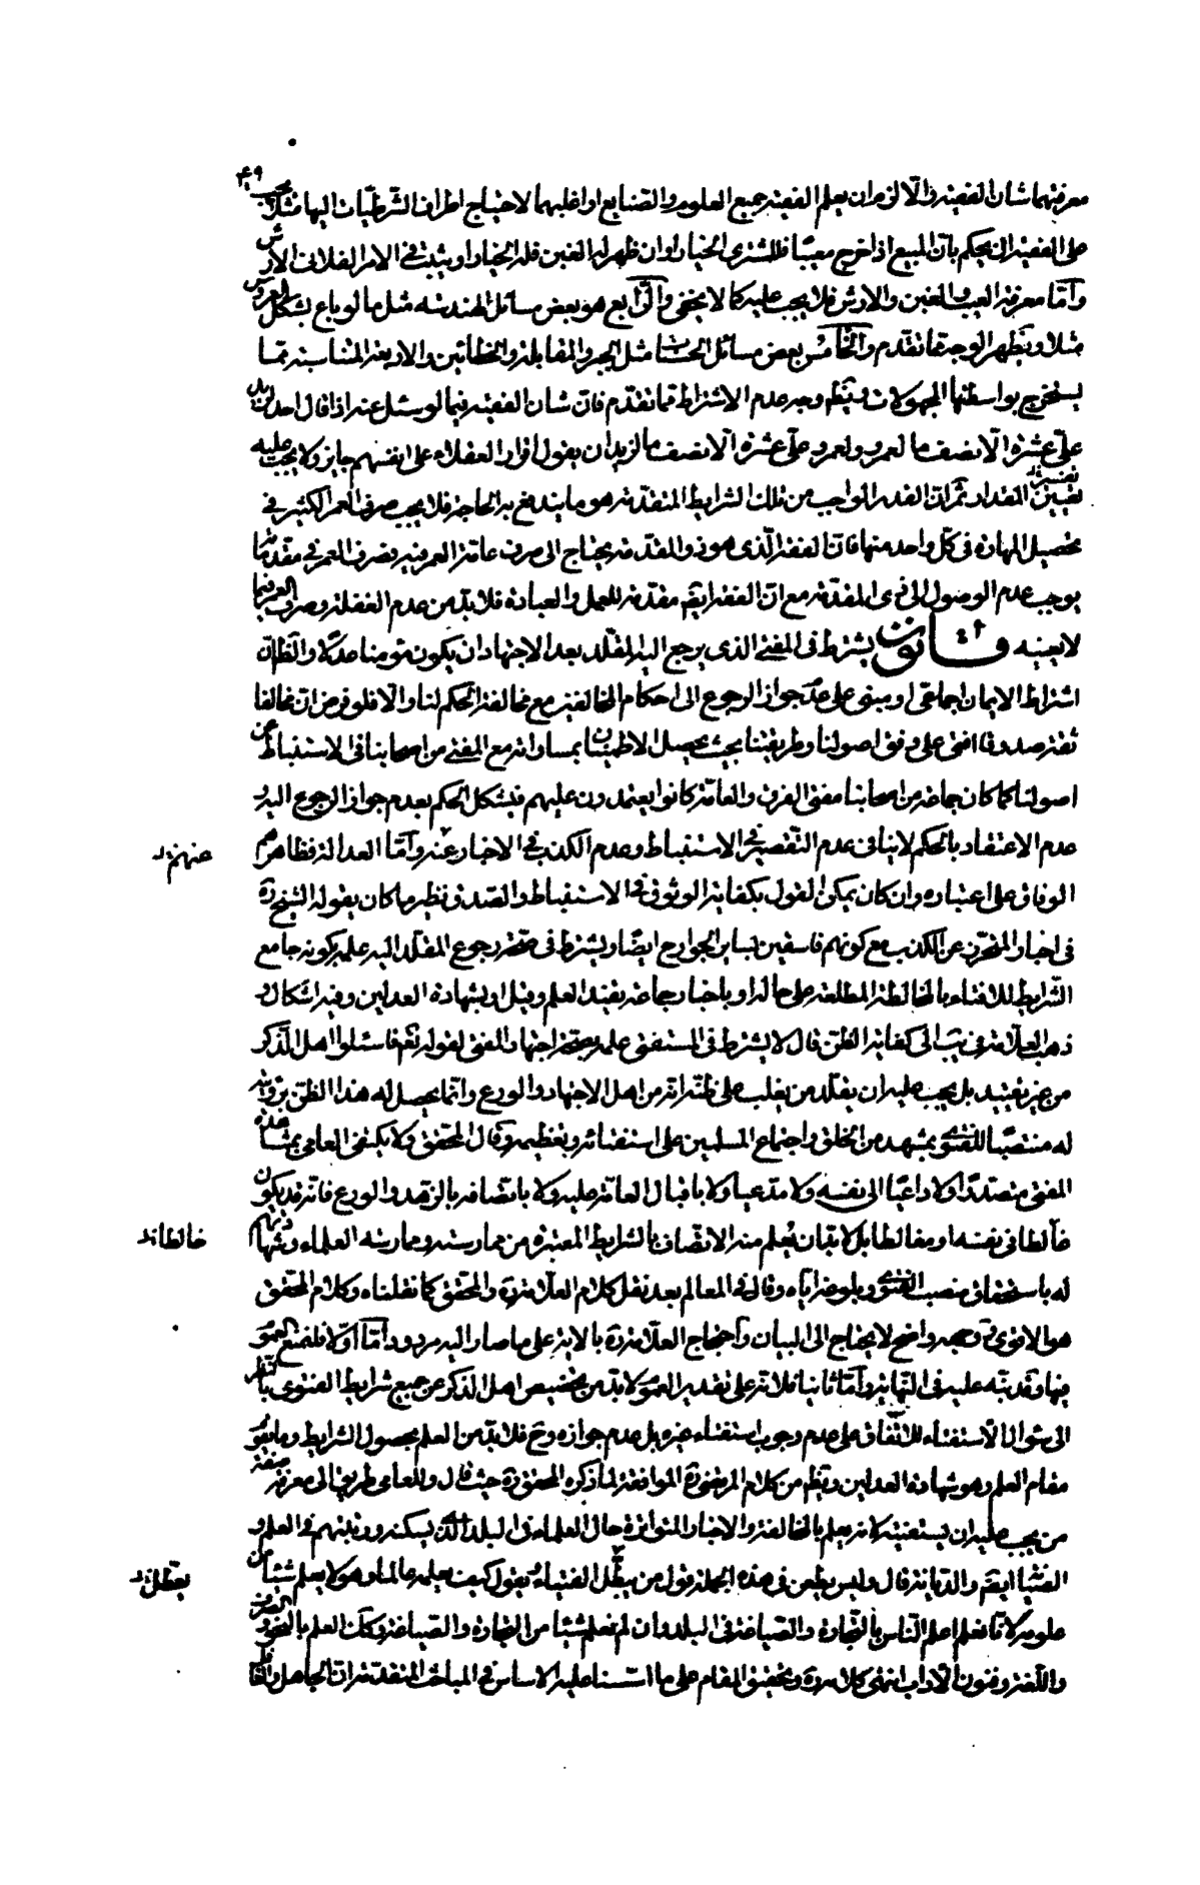 معرفتهما شان الفقيه والّا لزم ان يعلم الفقيه جميع العلوم والصنايع او اغلبهما لاحتياج اطراف الشرطيّات اليها مثلا يجب
على الفقيه ان يحكم بانّ المبيع اذا خرج معيبًا فللمشترى الخيار او ان ظهر له الغبن فله الخيار او يثبت فى الامر الفلانى الارش
وامّا معرفة العيب والغبن والارش فلا يجب عليه كما لا يخفى والرّابع هو بعض مسائل الهندسه مثل ما لو باع بشكل العروس
مثلا ويظهر الوجه مما تقدم والخامس بعض مسائل الحساب مثل الجبر والمقابلة والخطائين والاربعة المتناسبة ممّا
يستخرج بواسطتها المجهولات ويظهر وجه عدم الاشتراط مما تقدّم فان شان الفقيه فيما لو سئل عنه اذا قال احد لزيد
علىّ عشرة الّا نصف ما لعمرو ولعمرو علىّ عشرة الّا نصف ما لزيد ان يقول اقرار العقلاء على انفسهم جايز ولا يجب عليه
تعيين المقدار ثم ان القدر الواجب من تلك الشرايط المتقدمة هو ما يندفع به الحاجة فلا يجب صرف العمر الكثير فى
تحصيل المهارة فى كلّ واحد منها فان الفقه الّذى هو ذو المقدمة يحتاج الى صرف عامّة العمر فيه فصرف العمر فى مقدماتها
يوجب عدم الوصول الى ذى المقدمة مع ان الفقه ايضا مقدمة للعمل والعبادة فلا بد من عدم الغفلة وصرف العمر فيما
لا يعنيه قانون يشترط فى المفتى الذى يرجع اليه المقلد بعد الاجتهاد ان يكون مؤمنا عدلا والظاهر ان
اشتراط الايمان اجماعى او مبنى على عدم جواز الرجوع الى احكام المخالفين مع مخالفة الحكم لنا والّا فلو فرض ان مخالفا
ثقة صدوقا افتى على وفق اصولنا وطريقتنا بحيث يحصل الاطمينان بمساواته مع المفتى من اصحابنا فى الاستنباط عن
اصولنا كما كان جماعة من اصحابنا مفتى الفرق والعامّة كانوا يعتمدون عليهم فيشكل الحكم بعدم جواز الرجوع اليه و
عدم الاعتقاد بالحكم لا ينافى عدم التقصير فى الاستنباط وعدم الكذب فى الاخبار عنه وامّا العدالة فظاهرهم
الوفاق على اعتباره وان كان يمكن القول بكفاية الوثوق فى الاستنباط والصدق نظير ما كان يقوله الشيخ ره
فى اخبار المتحرز عن الكذب مع كونهم فاسقين بساير الجوارح ايضًا ويشترط فى صحّة رجوع المقلّد اليه علمه بكونه جامع
الشرايط للافتاء بالمخالطة المطلعة على حاله او باخبار جماعة يفيد العلم وقيل او بشهادة العدلين وفيه اشكال و
ذهب العلّامة فى يب الى كفاية الظن قال لا يشترط فى المستفتى علمه بصحّة اجتهاد المفتى لقوله تعم فاسئلوا اهل الذكر
من غير تقييد بل يجب عليه ان يقلّد من يغلب على ظنّه انّه من اهل الاجتهاد والورع وانّما يحصل له هذا الظن برؤيته
له منتصبًا للفتوى بمشهد من الخلق واجتماع المسلمين على استفتائه وتعظيمه وقال المحقق ولا يكتفى العامى بمشاهدة
المفتى متصدّرًا ولا داعيًا الى نفسه ولا مدعيا ولا باقبال العامّة عليه ولا باتصافه بالزهد والورع فانّه قد يكون
غالطا فى نفسه او مغالطا بل لابدّ ان يعلم منه الاتصاف بالشرايط المعتبرة من ممارسته وممارسة العلماء وشهادتهم
له باستحقاق منصب الفتوى وبلوغه ايّاه وقال فى المعالم بعد نقل كلام العلّامة ره والمحقق كما نقلناه وكلام المحقق
هو الاقوى ووجهه واضح لا يحتاج الى البيان واحتجاج العلّامة ره بالاية على ما صار اليه مردود امّا اوّلا فلمنع العموم
فيها وقد نبّه عليه فى النّهاية وامّا ثانيا فلانّه على تقدير العموم لابدّ من تخصيص اهل الذكر بمن جمع شرايط الفتوى بالنظر
الى سؤال الاستفتاء للاتّفاق على عدم وجوب استفتاء غيره بل عدم جوازه وح فلابدّ من العلم بحصول الشرايط وما يقوم
مقام العلم وهو شهادة العدلين ويظهر من كلام المرتضى ره الموافقة لما ذكره المحقق ره حيث قال وللعامى طريق الى معرفة صفة
من يجب عليه ان يستفتيه لانه يعلم بالمخالطة والاخبار المتواترة حال العلماء فى البلد الذى يسكنه ورتبتهم فى العلم و
الصّيانة ايضا والديانة قال وليس يطعن فى هذه الجملة قول من يبطل الفتياء بقوله كيف يعلمه عالما وهو لا يعلم شيئا من
علومه لانّا نعلم اعلم الناس بالتجارة والصياغة فى البلد وان لم نعلم شيئا من التجارة والصياغة وكذلك العلم بالنحو
واللغة وفنون الآداب انتهى كلامه ره وتحقيق المقام على ما اسّسنا عليه الاساس فى المباحث المتقدمة ان الجاهل والغافل
عنهم
غالطا
يبطل